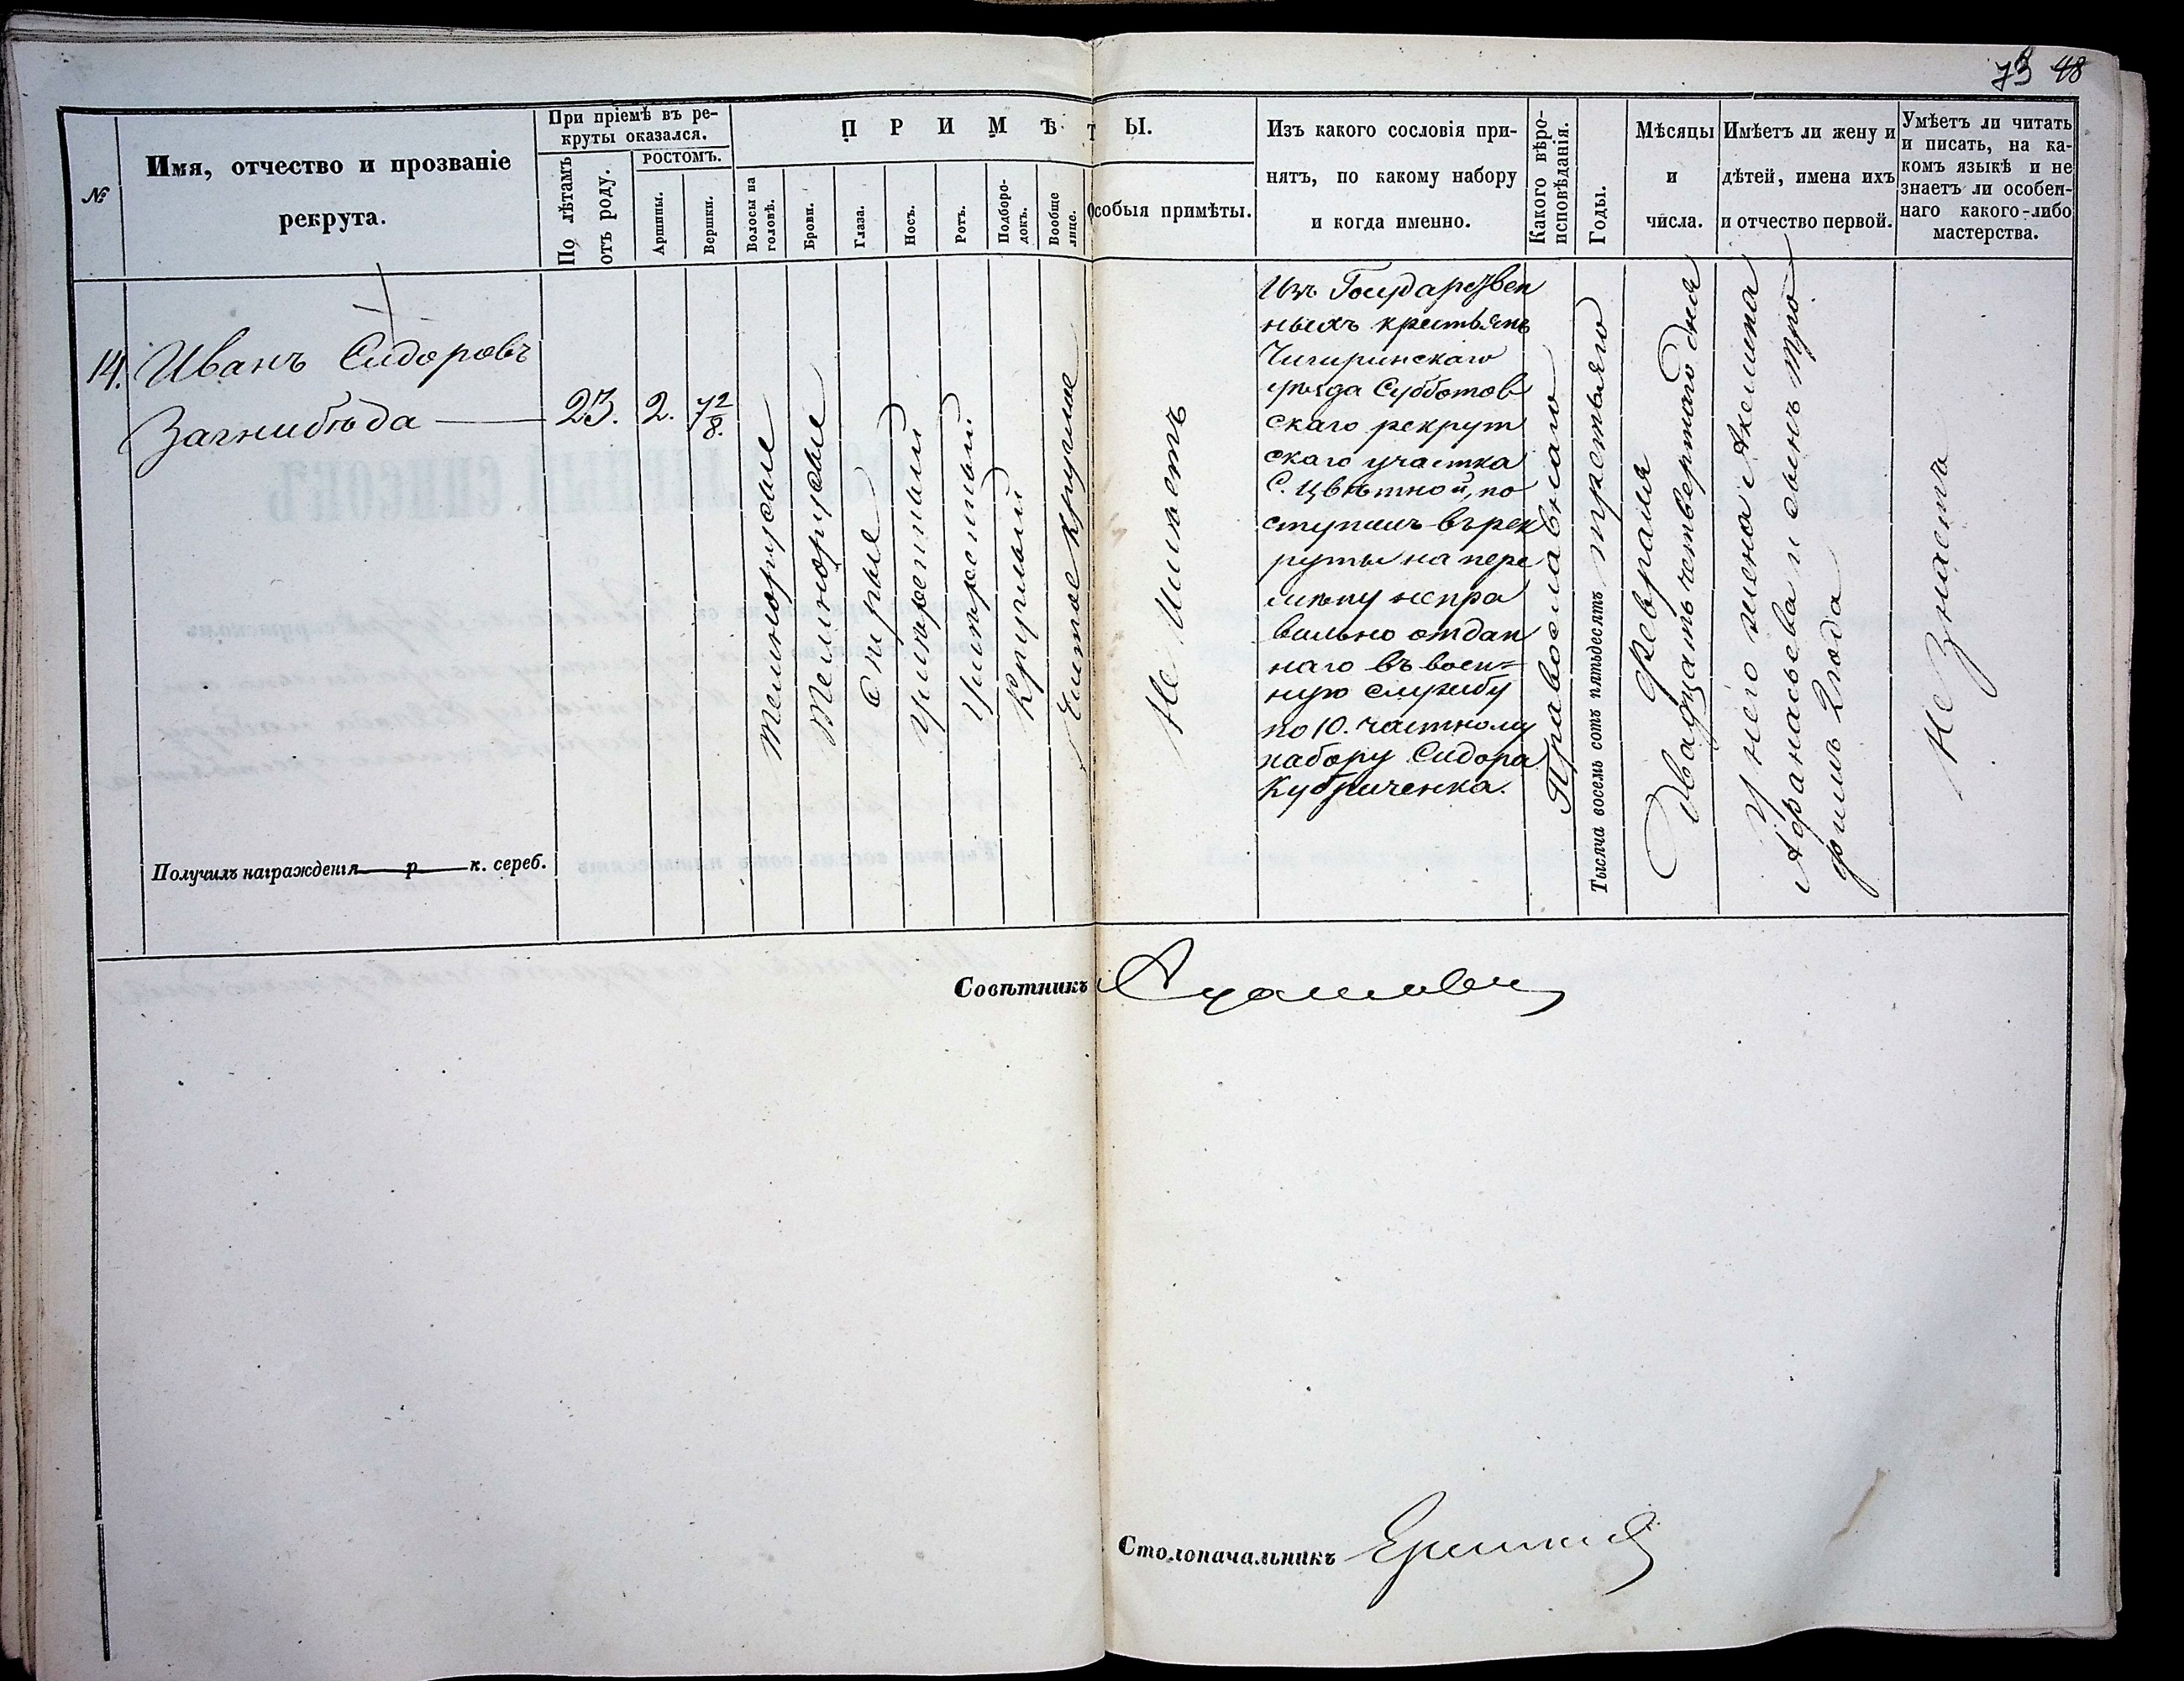 73 48
№
Имя, отчество и прозваніе
рекрута.
При пріемѣ въ ре-
круты оказался.
По лѣтамъ
отъ роду.
РОСТОМЪ.
Аршины.
Вершки.
ПРИМѢТЫ.
Волосы на
головѣ.
Брови.
Глаза.
Носъ.
Ротъ.
Подборо-
докъ.
Вообще
лице.
Особыя примѣты.
Изъ какого сословія при-
нятъ, по какому набору
и когда именно.
Какого вѣро-
исповѣданія.
Годы.
Мѣсяцы
и
числа.
Имѣетъ ли жену и
дѣтей, имена ихъ
и отчество первой.
Умѣетъ ли читать
и писать, на ка-
комъ языкѣ и не
знаетъ ли особен-
наго какого-либо
мастерства.
14.
Иванъ Сидоровъ
Загнибѣда
23.
2.
7 2/8.
Темнорусые
Темнорусые
Сѣрые
Умѣренный
Умѣренный
Круглый
Чистое круглое
Не Имѣетъ
Изъ Государствен
ныхъ крестьянъ
Чигиринскаго
уѣзда Субботов
скаго рекрут
скаго участка
С. Цвѣтной, по
ступилъ въ рек
руты на пере
мѣну непра
вильно отдан
наго въ воен=
ную службу
по 10. частному
набору Сидора
Православнаго
Тысяча восемь сотъ пятьдесятъ третьяго
Февраля
двадцать четвертаго дня
У него жена Акелина
Афанасьева и сынъ Тро
фимъ 2 года
Не Знаетъ
Получилъ награжденія р. к. сереб.
Совѣтникъ
Столоначальникъ